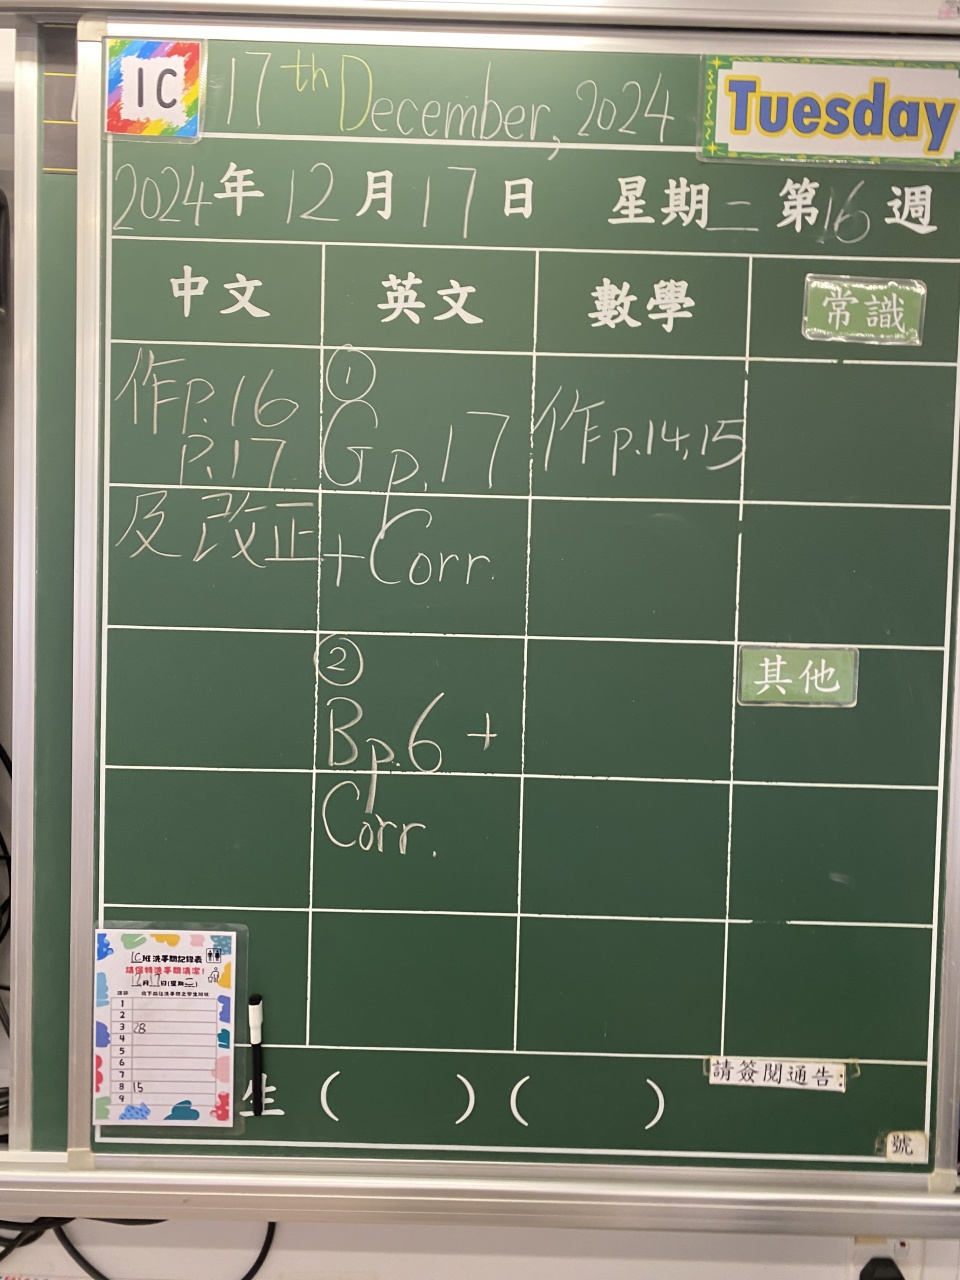 1C
17th December, 2024
Tuesday
2024年12月17日 星期二 第16週
中文 英文 數學 常識
作P.16
P.17
及改正
①
Gp.17
+Corr.
②
Bp.6 +
Corr.
作p.14,15
其他
1C班洗手間記錄表
請保持洗手間清潔!
12月17日(星期二)
1
2
3 28
4
5
6
7
8 15
9
生 ( ) ( )
請簽閱通告:
號